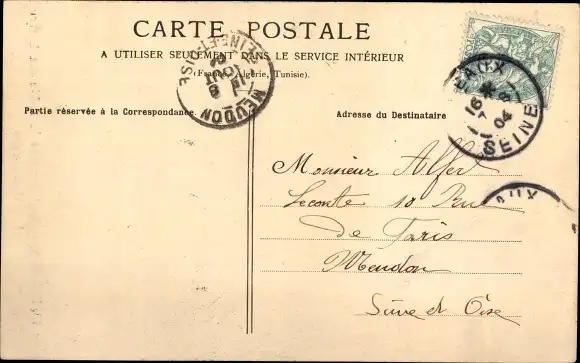 CARTE POSTALE
A UTILISER SEULEMENT DANS LE SERVICE INTÉRIEUR
(France, Algérie, Tunisie).
SEINE-ET-OISE
MEUDON
AUX
16
04
SEINE
AUX
Partie réservée à la Correspondance.
Adresse du Destinataire
Monsieur Alfed
Leconte 10 Rue
De Paris
Meudon
Seine et Oise